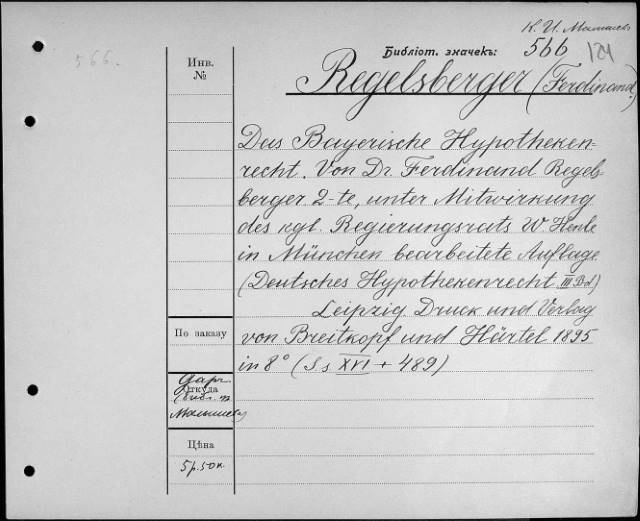 К. И. Малышев
566.
Библіот. значекъ: 566 121
Инв.
№
Regelsberger (Ferdinand.)
Das Bayerische Hypotheken-
recht. Von Dr. Ferdinand Regels-
berger 2-te, unter Mitwirkung
des kgl. Regierungsrats W. Henle
in München bearbeitete Auflage
(Deutsches Hypothekenrecht III Bd.)
Leipzig. Druck und Verlag
von Breitkopf und Härtel 1895
in 8° (Ss XVI + 489)
По заказу
Даръ
Откуда
Библ.
Малышева
Цѣна
5 р. 50 к.